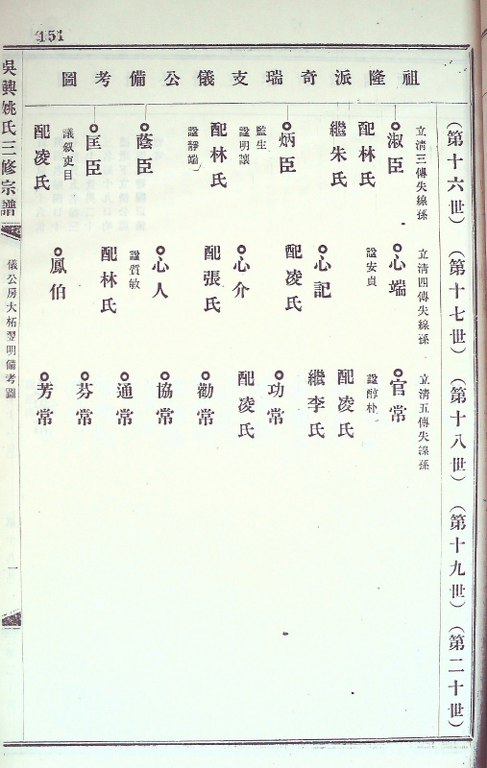 151
吳興姚氏三修宗譜
儀公房大柘墅明備考圖
一
祖隆派奇瑞支儀公備考圖
(第十六世)
(第十七世)
(第十八世)
(第十九世)
(第二十世)
立清三傳失線孫
淑臣
配林氏
繼朱氏
炳臣
監生
諡明讓
配林氏
諡靜端
蔭臣
匡臣
議叙吏目
配凌氏
立清四傳失線孫
心端
諡安貞
心記
配凌氏
心介
配張氏
心人
諡質敏
配林氏
鳳伯
立清五傳失線孫
官常
諡醇朴
配凌氏
繼李氏
功常
配凌氏
勸常
協常
通常
芬常
芳常